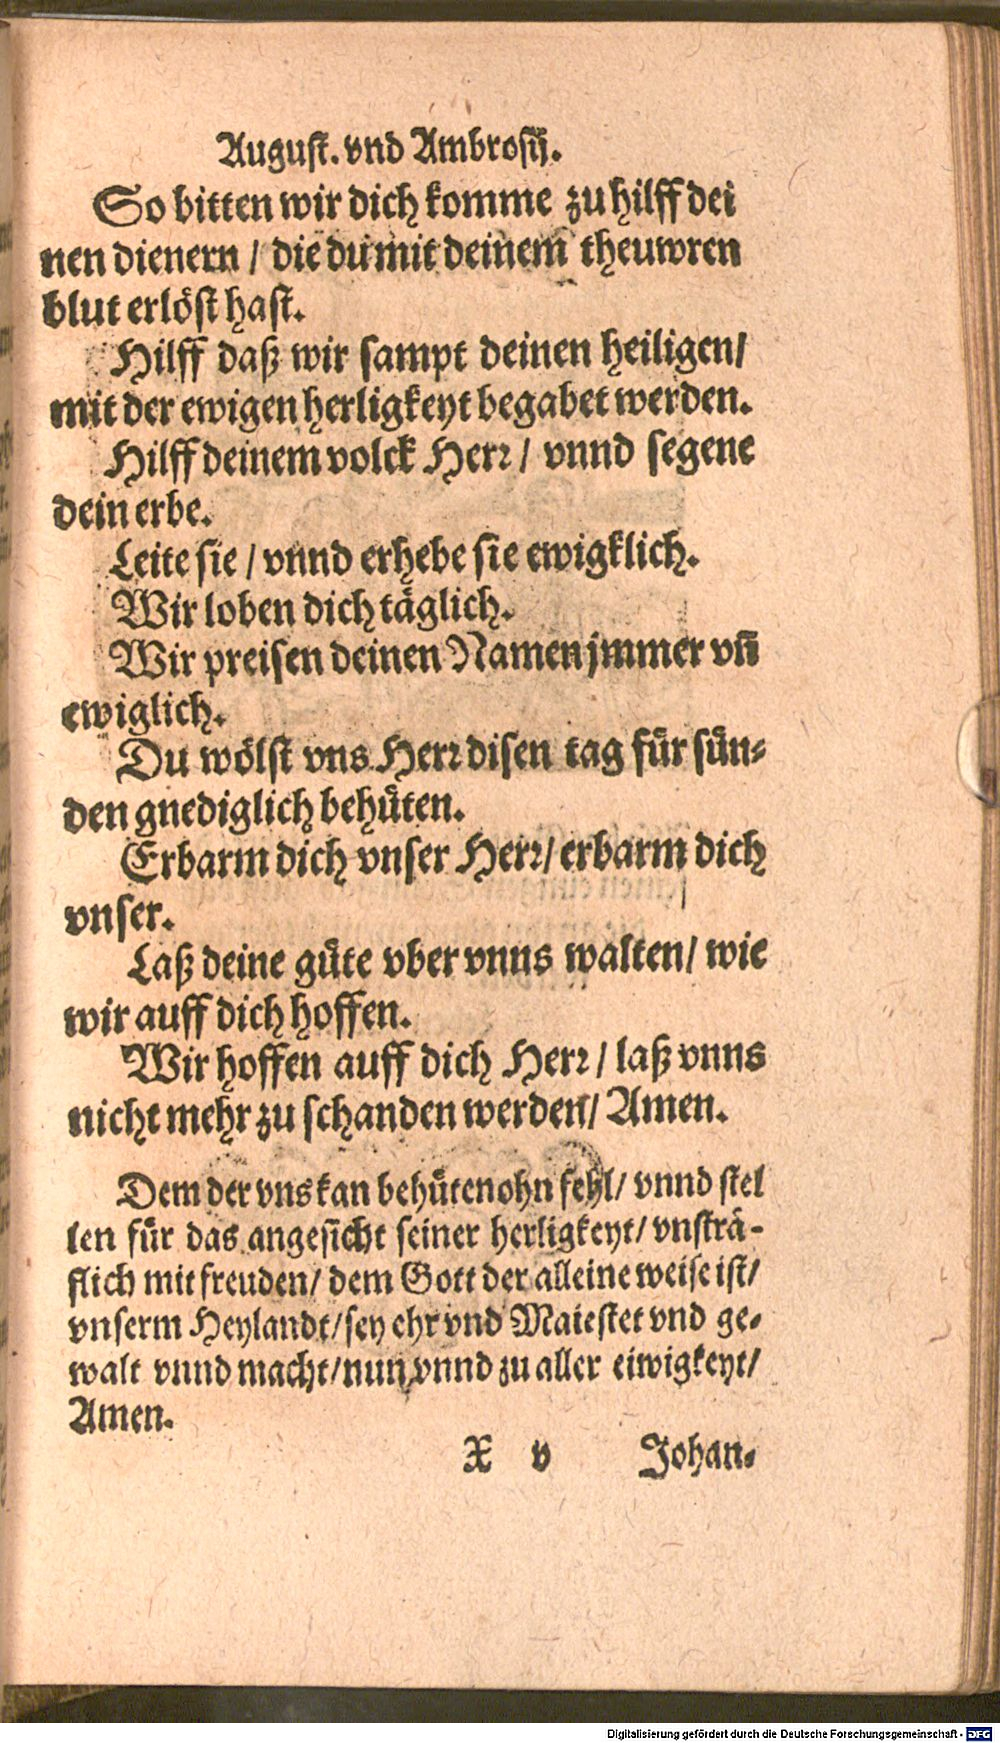 August. vnd Ambrosij.
So bitten wir dich komme zu hilff dei
nen dienern / die du mit deinem theuwren
blut erlöst hast.
Hilff daß wir sampt deinen heiligen/
mit der ewigen herligkeyt begabet werden.
Hilff deinem volck Herr / vnnd segene
dein erbe.
Leite sie / vnnd erhebe sie ewigklich.
Wir loben dich täglich.
Wir preisen deinen Namen jmmer vñ
ewiglich.
Du wölst vns Herr disen tag für sün-
den gnediglich behüten.
Erbarm dich vnser Herr/ erbarm dich
vnser.
Laß deine güte vber vnns walten/ wie
wir auff dich hoffen.
Wir hoffen auff dich Herr / laß vnns
nicht mehr zu schanden werden/ Amen.
Dem der vns kan behüten ohn fehl/ vnnd stel
len für das angesicht seiner herligkeyt/ vnsträ-
flich mit freuden/ dem Gott der alleine weise ist/
vnserm Heylandt/ sey ehr vnd Maiestet vnd ge-
walt vnnd macht/ nun vnnd zu aller eiwigkeyt/
Amen.
X v Johan-
Digitalisierung gefördert durch die Deutsche Forschungsgemeinschaft - DFG